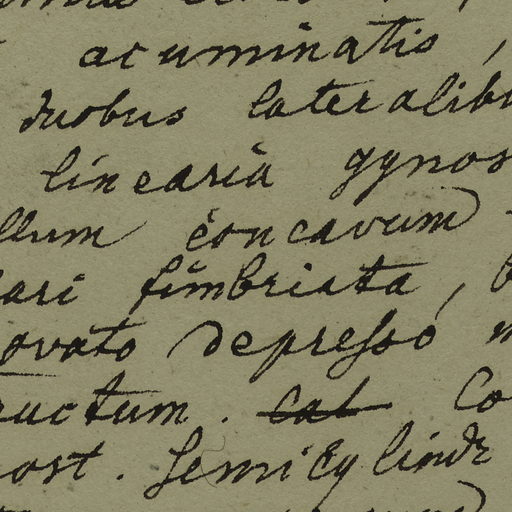 acuminatis,
duobus lateralibu
linearia gynos
llum concavum
ari fimbriata,
ovato depresso
uctum. cal Co
ost. Semicylindr